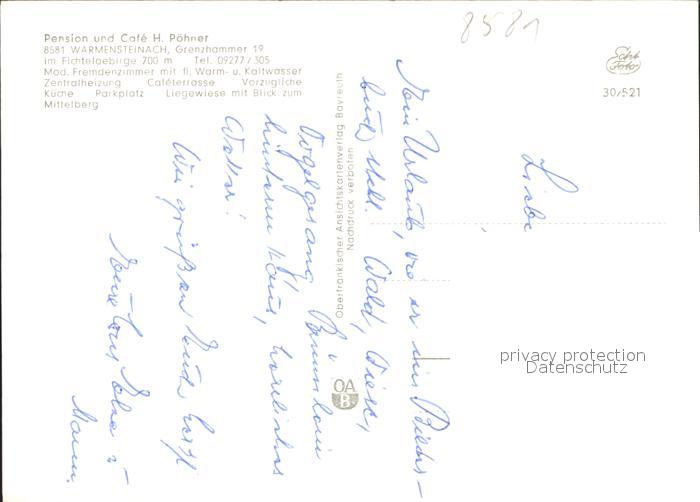 8581
Pension und Café H. Pöhner
8581 WARMENSTEINACH, Grenzhammer 19
im Fichtelgebirge 700 m Tel. 09277/305
Mod. Fremdenzimmer mit fl. Warm- u. Kaltwasser
Zentralheizung Caféterrasse Vorzügliche
Küche Parkplatz Liegewiese mit Blick zum
Mittelberg
30/521
Oberfränkischer Ansichtskartenverlag Bayreuth
Nachdruck verboten
OA
B
Liebe
Mein Urlaub, wie er im Bilder-
buch steht. Wald, Wiese,
Vogelgesang, Bäumlein
hinterm Haus, herrliches
Wetter!
Wir grüßen Euch herzl
Eure
Mann.
privacy protection
Datenschutz